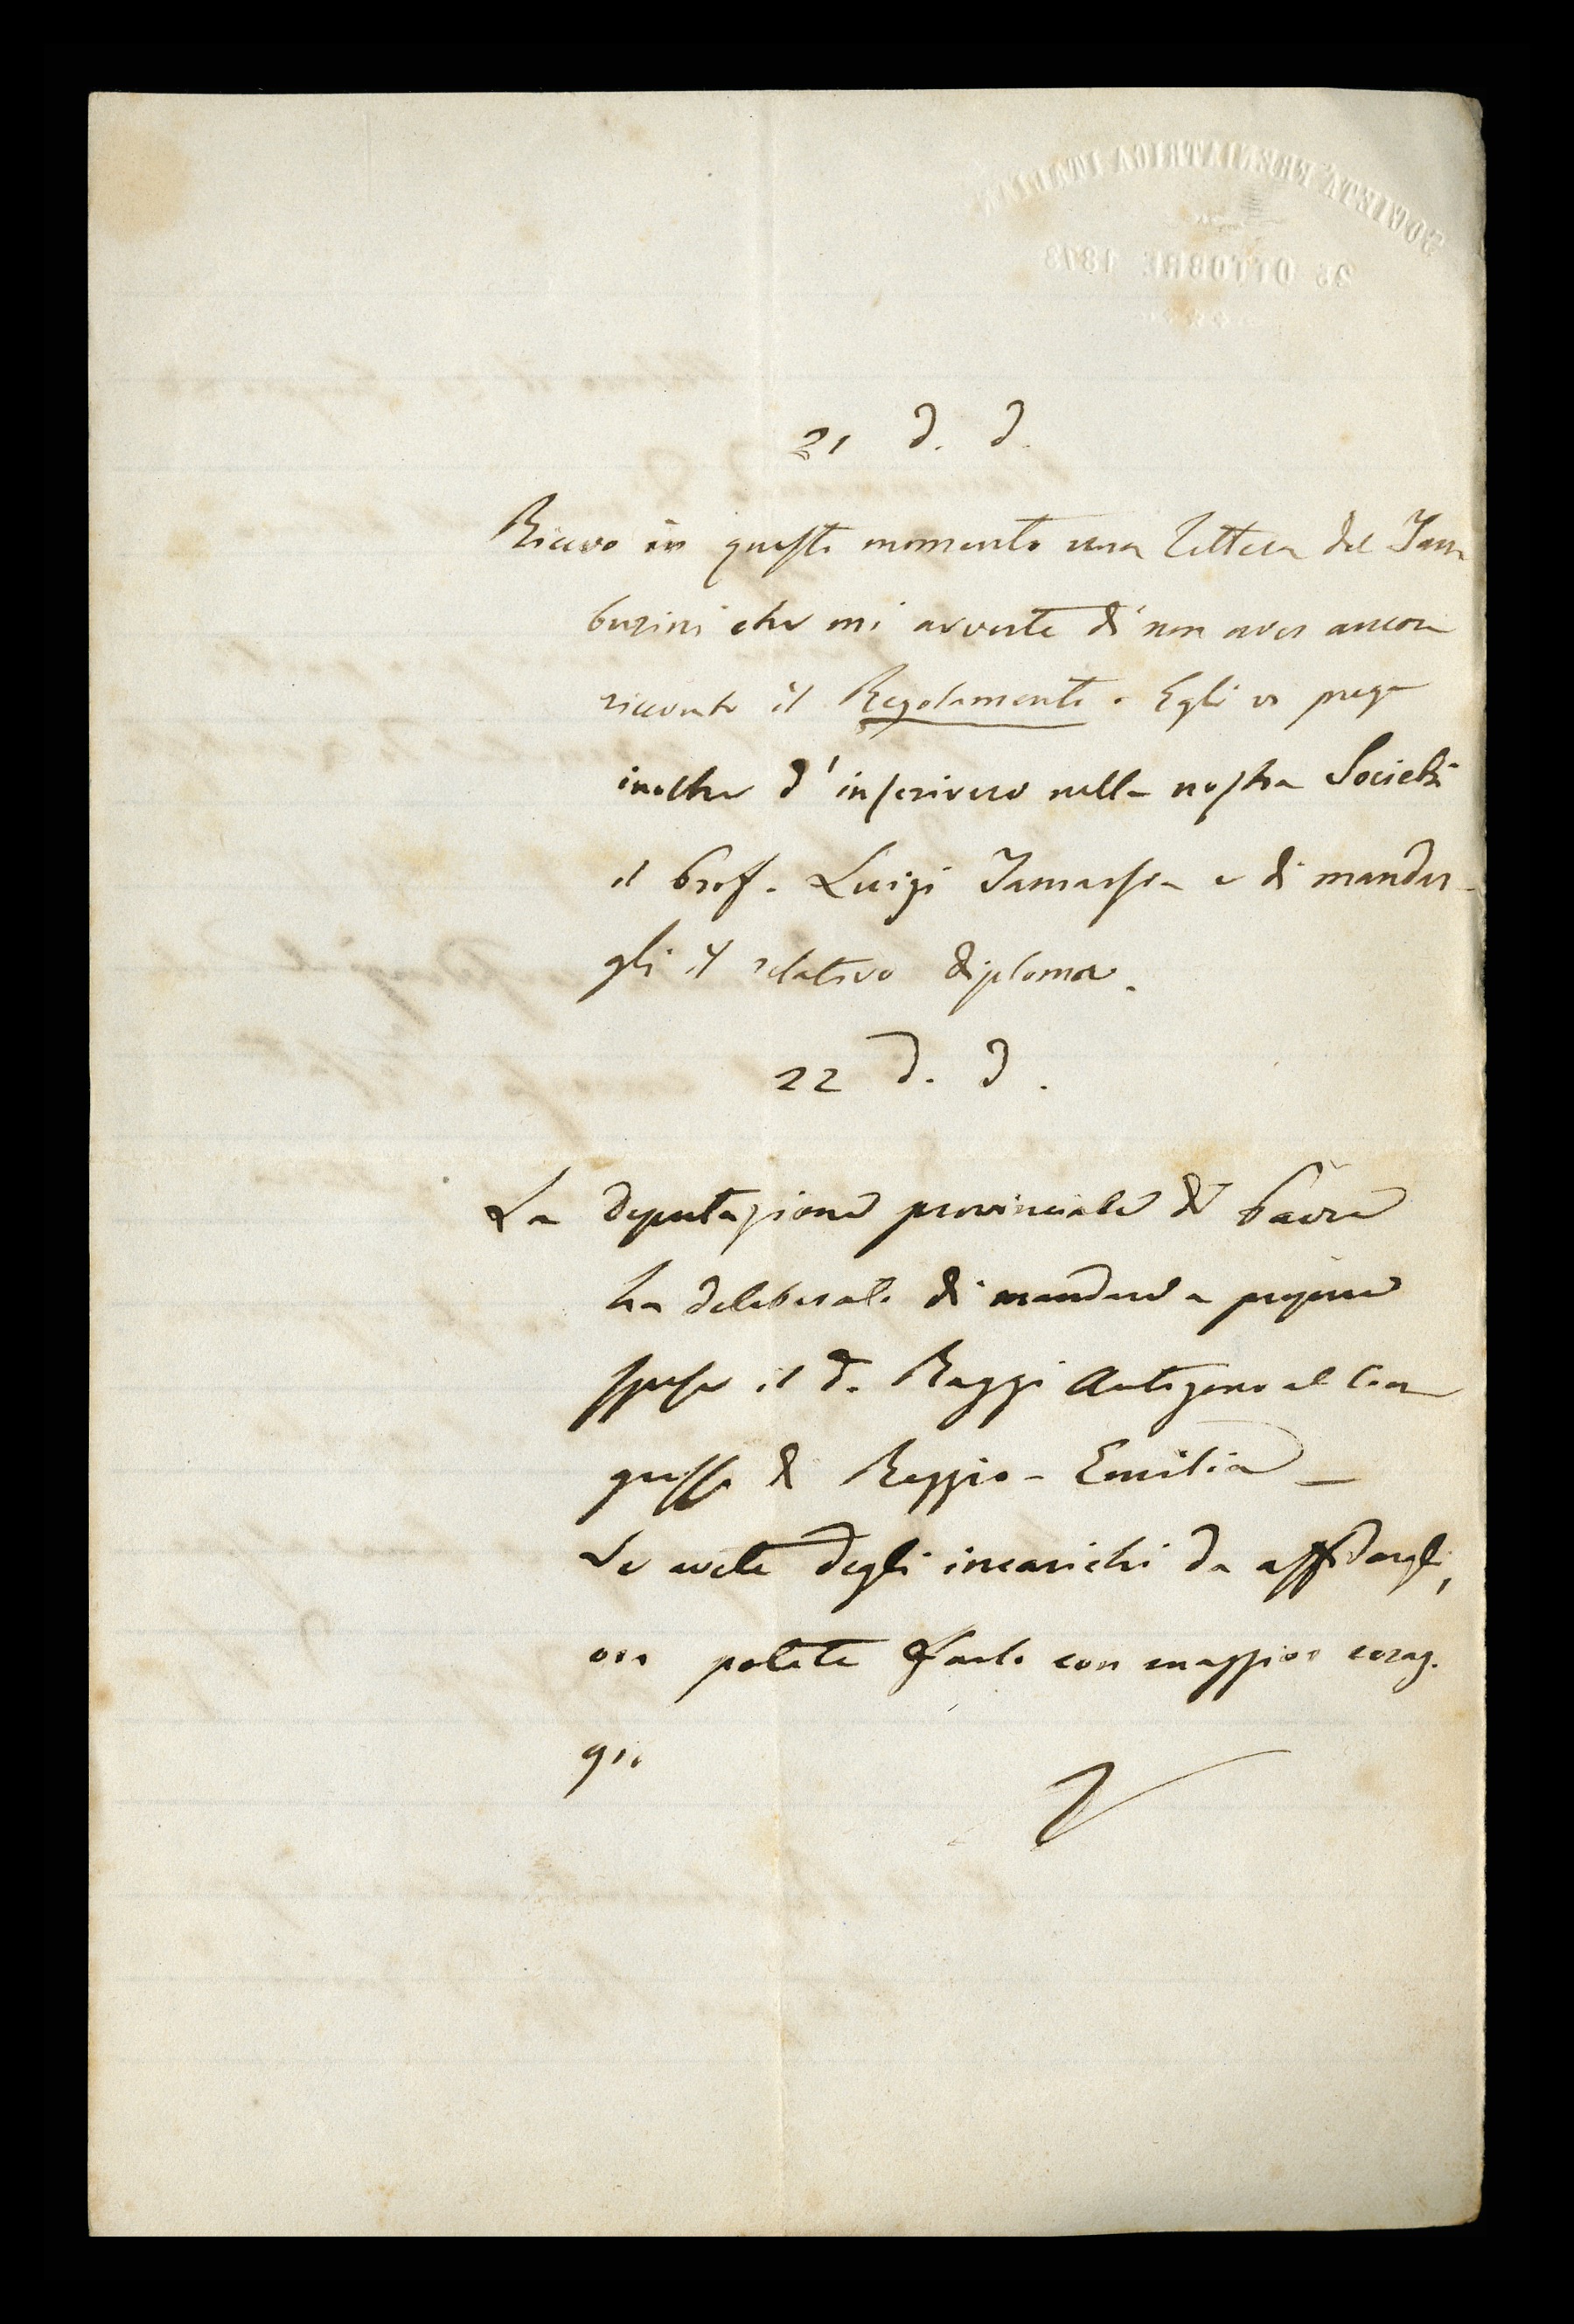 SOCIETÀ FRENIATRICA ITALIANA
OTTOBRE 1873
21 d. d.
Ricevo in questo momento una lettera del Tam
burini che mi avverte di non aver ancora
ricevuto il Regolamento. Egli vi prega
inoltre d'inscrivere nella nostra Società
il Prof. Luigi Tamassia e di mandar-
gli il relativo diploma.
22 d. d.
La deputazione provinciale di Pavia
ha deliberato di mandare a proprie
spese il d. Raggi Antigono al Con
gresso di Reggio-Emilia —
Se avete degli incarichi da affidargli,
ora potete farlo con maggior corag-
gio